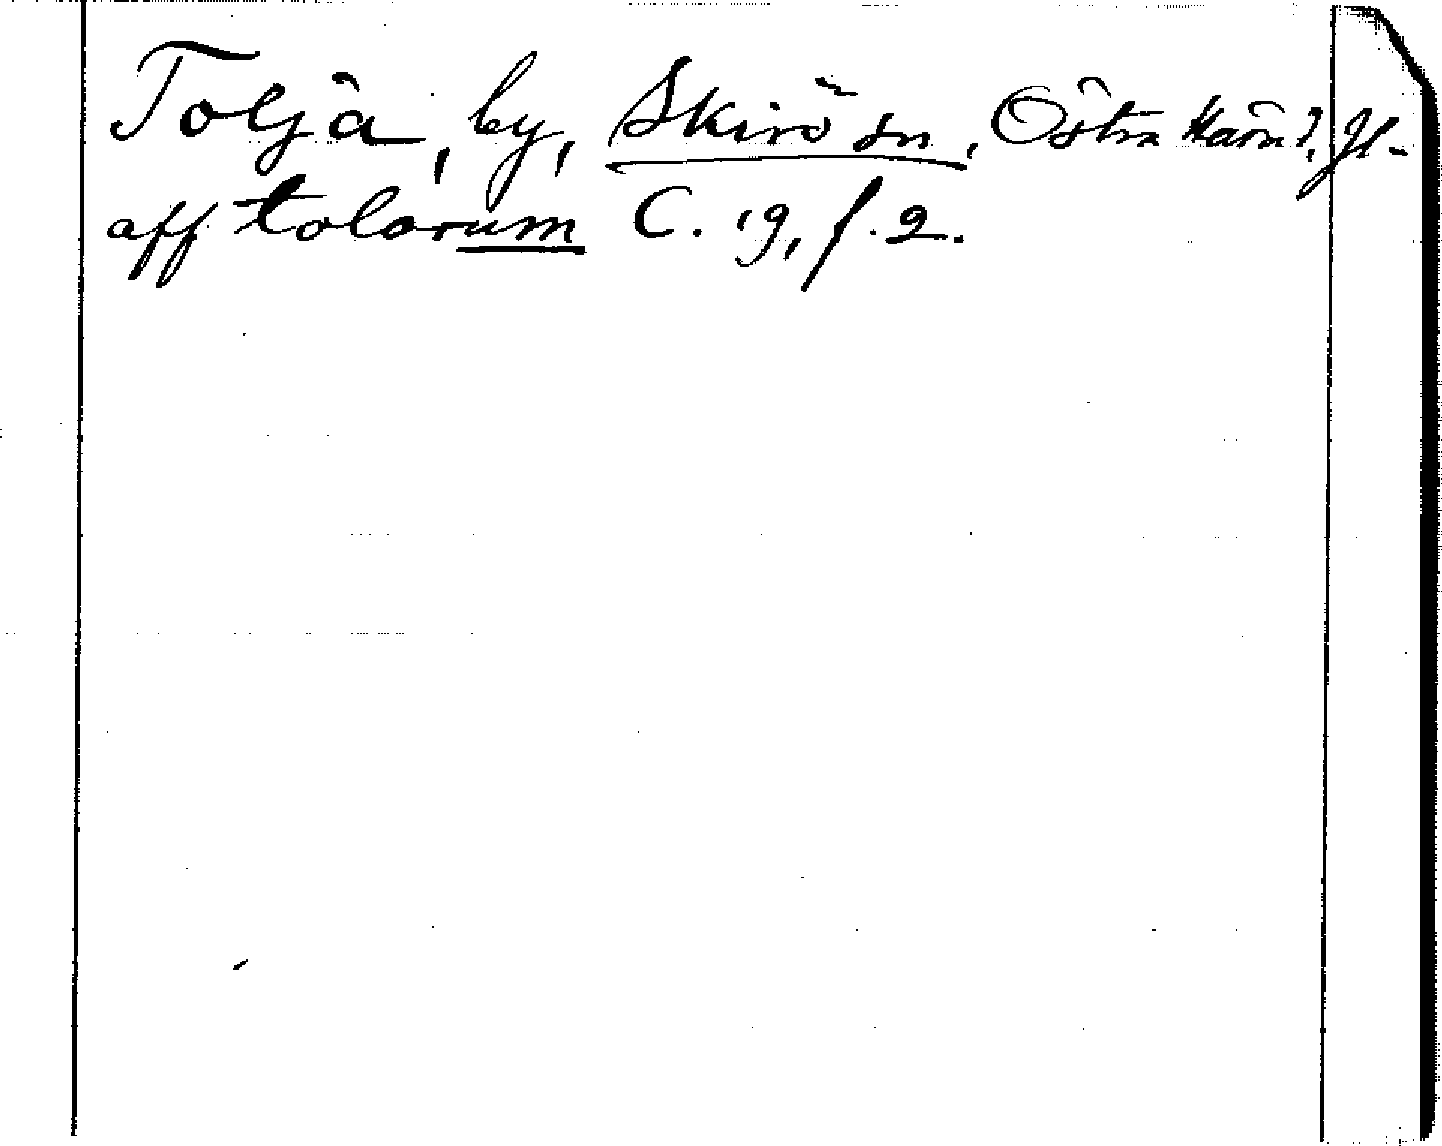 Toljä, by, Skirö sn, Östra Här?, Jl-
aff tolorum C. 19, f. 2.